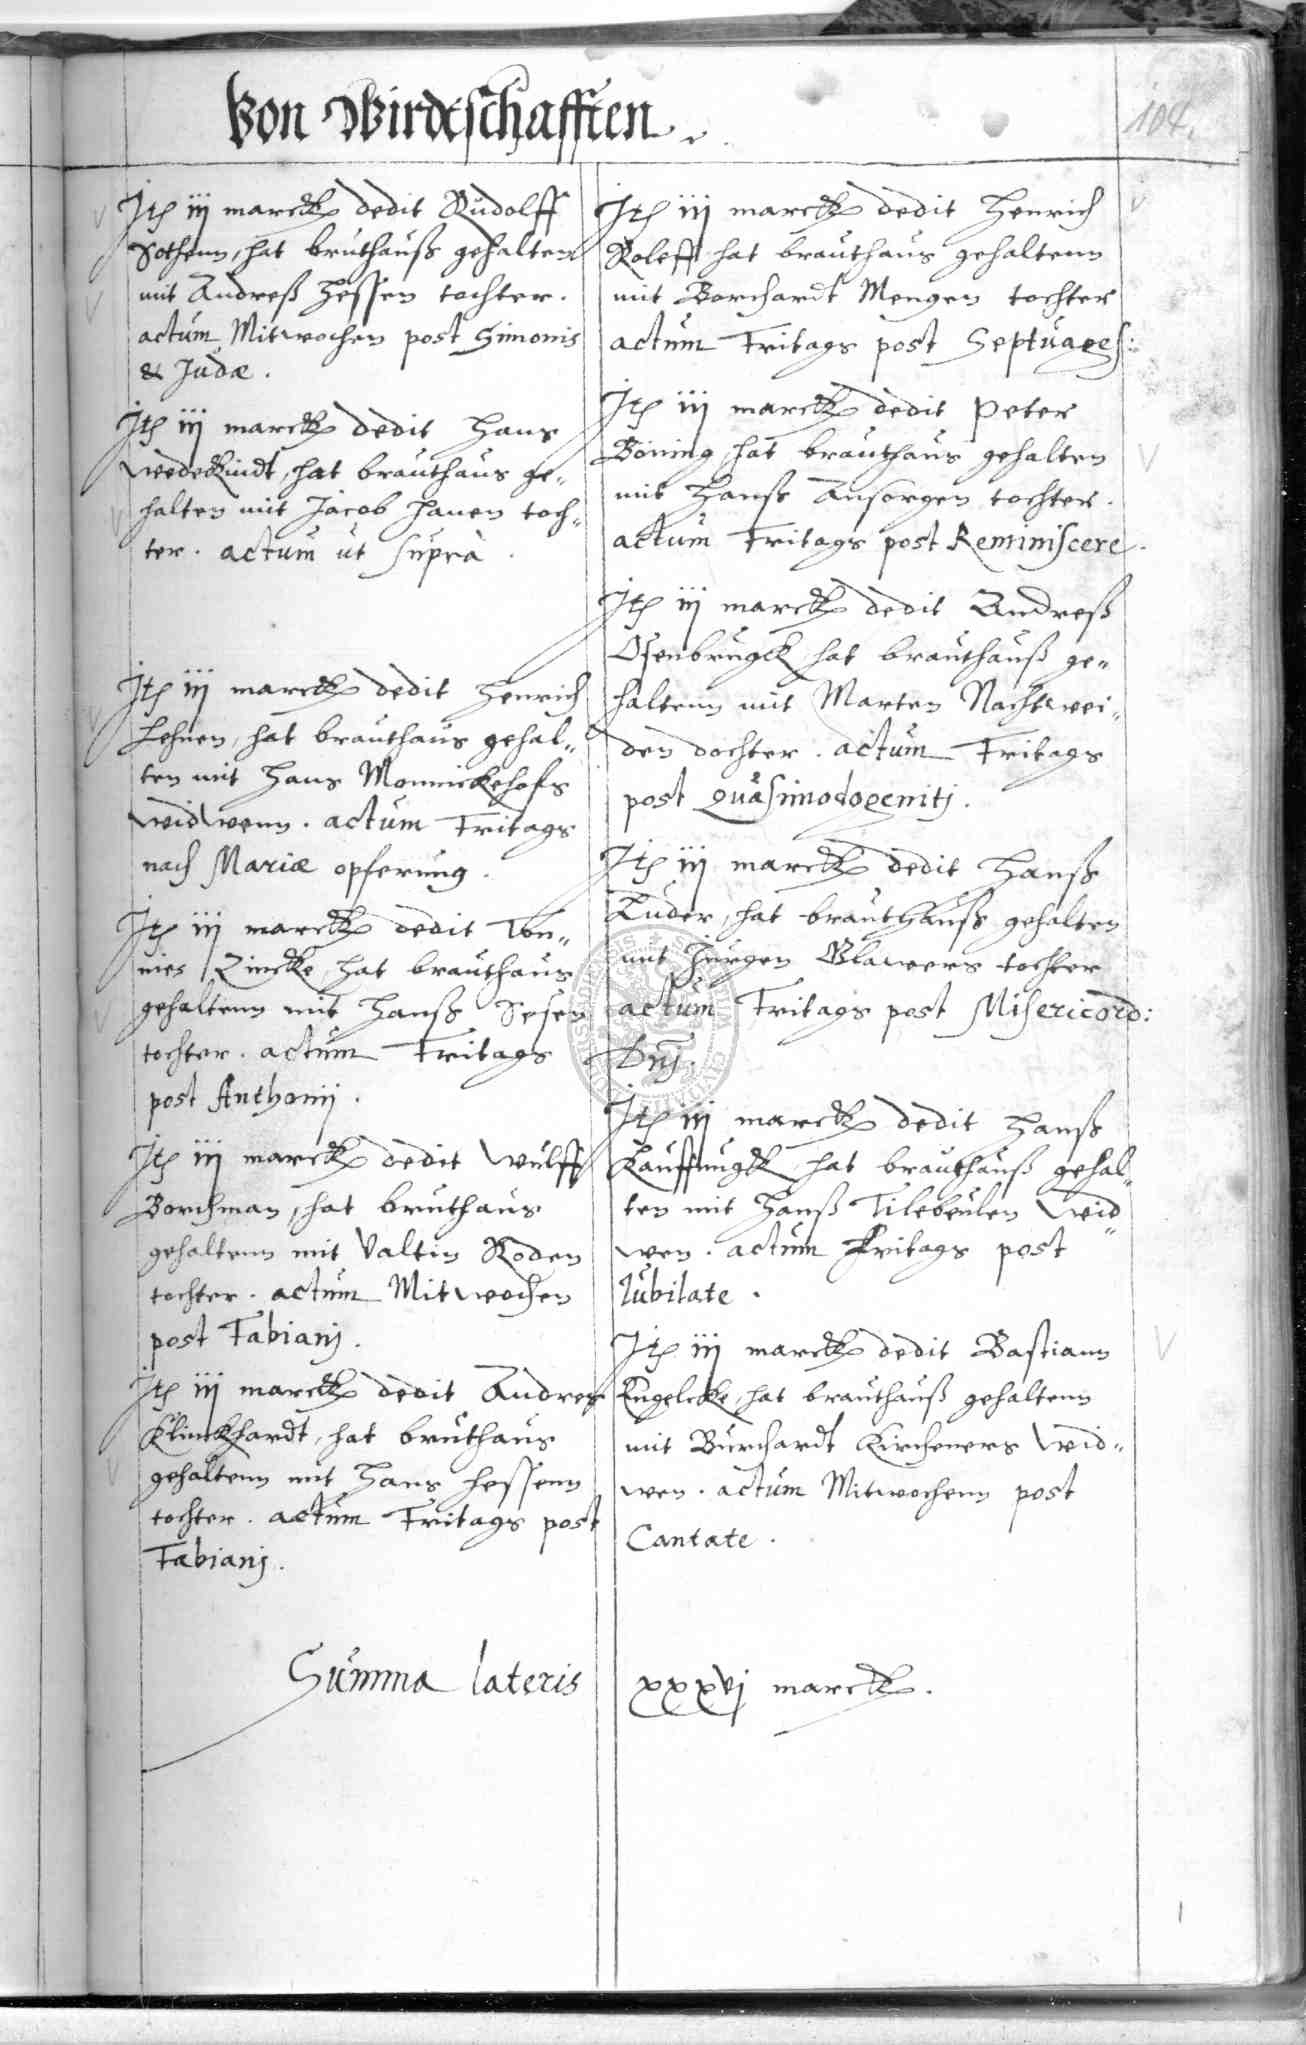 Von Wirdtschafften.
104.
Itē iij marck dedit Rudolff
Sothenn, hat bruthauß gehalten
mit Andreß Hessen tochter.
actum Mitwochen post Simonis
& Judæ.
Itē iij marck dedit Hans
Wedekindt, hat brauthaus ge„
halten mit Jacob Hanen toch„
ter. actum ut suprà.
Itē iij marck dedit Henrich
Lehnen, hat brauthaus gehal„
ten mit Hans Monnickehofs
widwenn. actum Fritags
nach Mariæ opferung.
Itē iij marck dedit Ton„
nies Zincke, hat brauthaus
gehaltenn mit Hanß Sesen
tochter. actum Fritags
post Anthonij.
Itē iij marck dedit Wulff
Borchman, hat bruthaus
gehaltenn mit Valtin Roden
tochter. actum Mitwochen
post Fabianj.
Itē iij marck dedit Andres
Klinckhardt, hat bruthaus
gehaltenn mit Hans Hessenn
tochter. actum Fritags post
Fabianj.
Itē iij marck dedit Henrich
Roleff hat brauthaus gehaltenn
mit Borchardt Mengen tochter
actum Fritags post Septuages:
Itē iij marck dedit Peter
Böning hat brauthaus gehalten
mit Hanß Ansorgen tochter.
actum Fritags post Reminiscere.
Itē iij marck dedit Andreß
Osenbrugck hat brauthauß ge„
haltenn mit Marten Nachtwei„
den dochter. actum Fritags
post Quasimodogenitj.
Itē iij marck dedit Hanß
Luder, hat brauthauß gehalten
mit Jurgen Blawers tochter
actum Fritags post Misericord:
Dnj.
Itē iij marck dedit Hanß
Kauffungk hat brauthauß gehal„
ten mit Hanß Tilebeulen wid„
wen. actum Fritags post
Jubilate.
Itē iij marck dedit Bastiann
Engelcke, hat brauthauß gehaltenn
mit Burchardt Kircheners wid„
wen. actum Mitwochenn post
Cantate.
Summa lateris xxxvj marck.